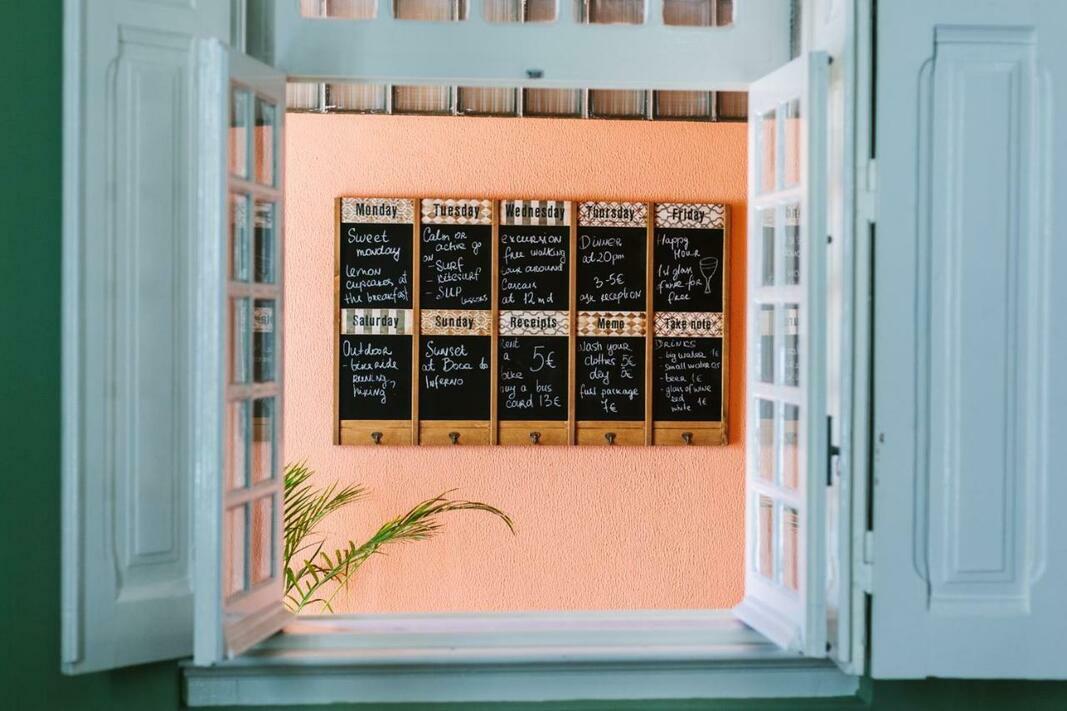 Monday
Sweet
monday
lemon
cupcakes at
the breakfast
Tuesday
Calm or
active go
on
- SURF
- kitesurf
- SUP
lessons
Wednesday
excursion
free walking
tour around
Cascais
at 12 md
Thursday
Dinner
at 20 pm
3-5€
ask reception
Friday
Happy
Hour
1st glass
of wine for
free
Saturday
Outdoor
- bike ride
running,
hiking
Sunday
Sunset
at Boca do
Inferno
Receipts
rent
a 5€
bike
buy a bus
card 13€
Memo
Wash your
clothes 5€
dry 5€
full package
7€
Take note
DRINKS
- big water 1€
- small water
- beer 1€
- glass of wine
red
white 1€